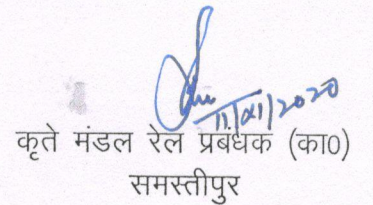 11/XI/2020
कृते मंडल रेल प्रबंधक (का0)
समस्तीपुर